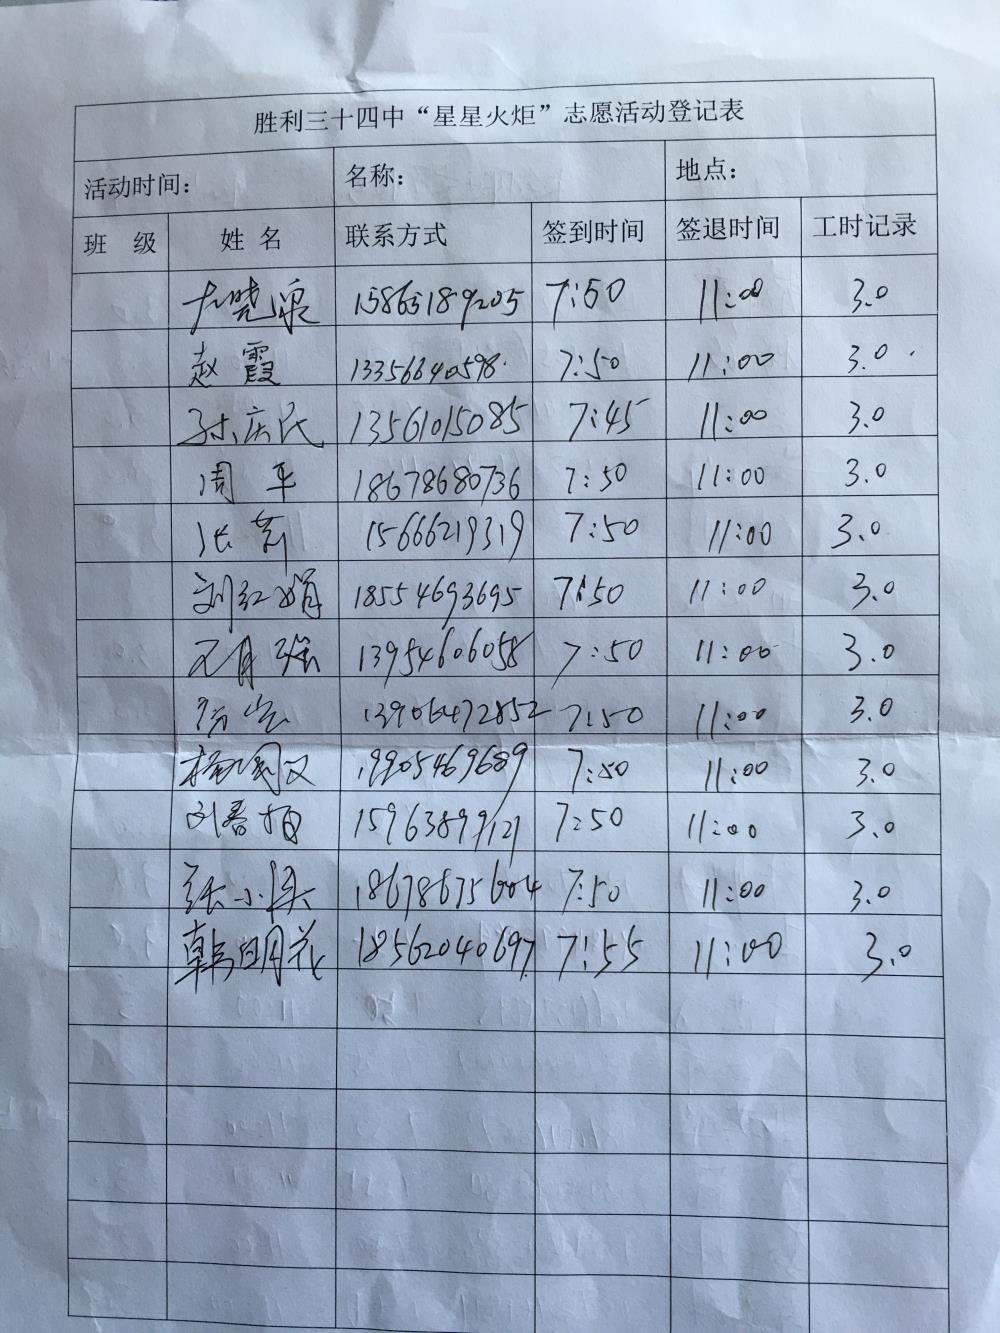 胜利三十四中“星星火炬”志愿活动登记表
活动时间： 名称： 地点：
班 级 姓 名 联系方式 签到时间 签退时间 工时记录
晓泉 15865189205 7:50 11:00 3.0
赵霞 13356640598 7:50 11:00 3.0
孙庆民 13561015085 7:45 11:00 3.0
周平 18678680736 7:50 11:00 3.0
张芳 15666219319 7:50 11:00 3.0
刘红娟 18554693695 7:50 11:00 3.0
13954606058 7:50 11:00 3.0
13906472852 7:50 11:00 3.0
杨国义 19905469689 7:50 11:00 3.0
刘春梅 15963899121 7:50 11:00 3.0
张小 18678675604 7:50 11:00 3.0
韩明花 18562040697 7:55 11:00 3.0